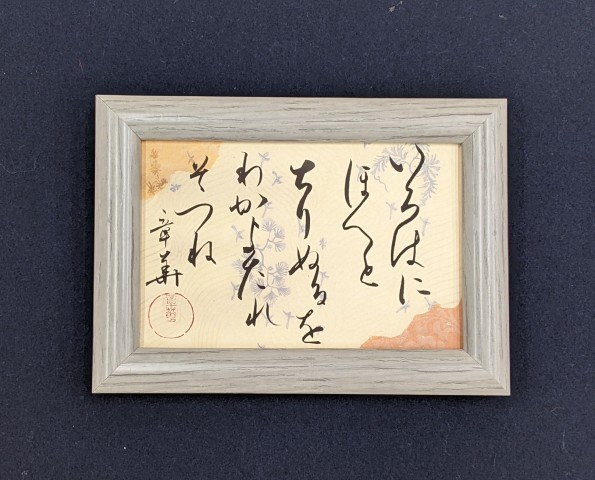 いろはに
ほへと
ちりぬるを
わかよたれ
そつね
章華